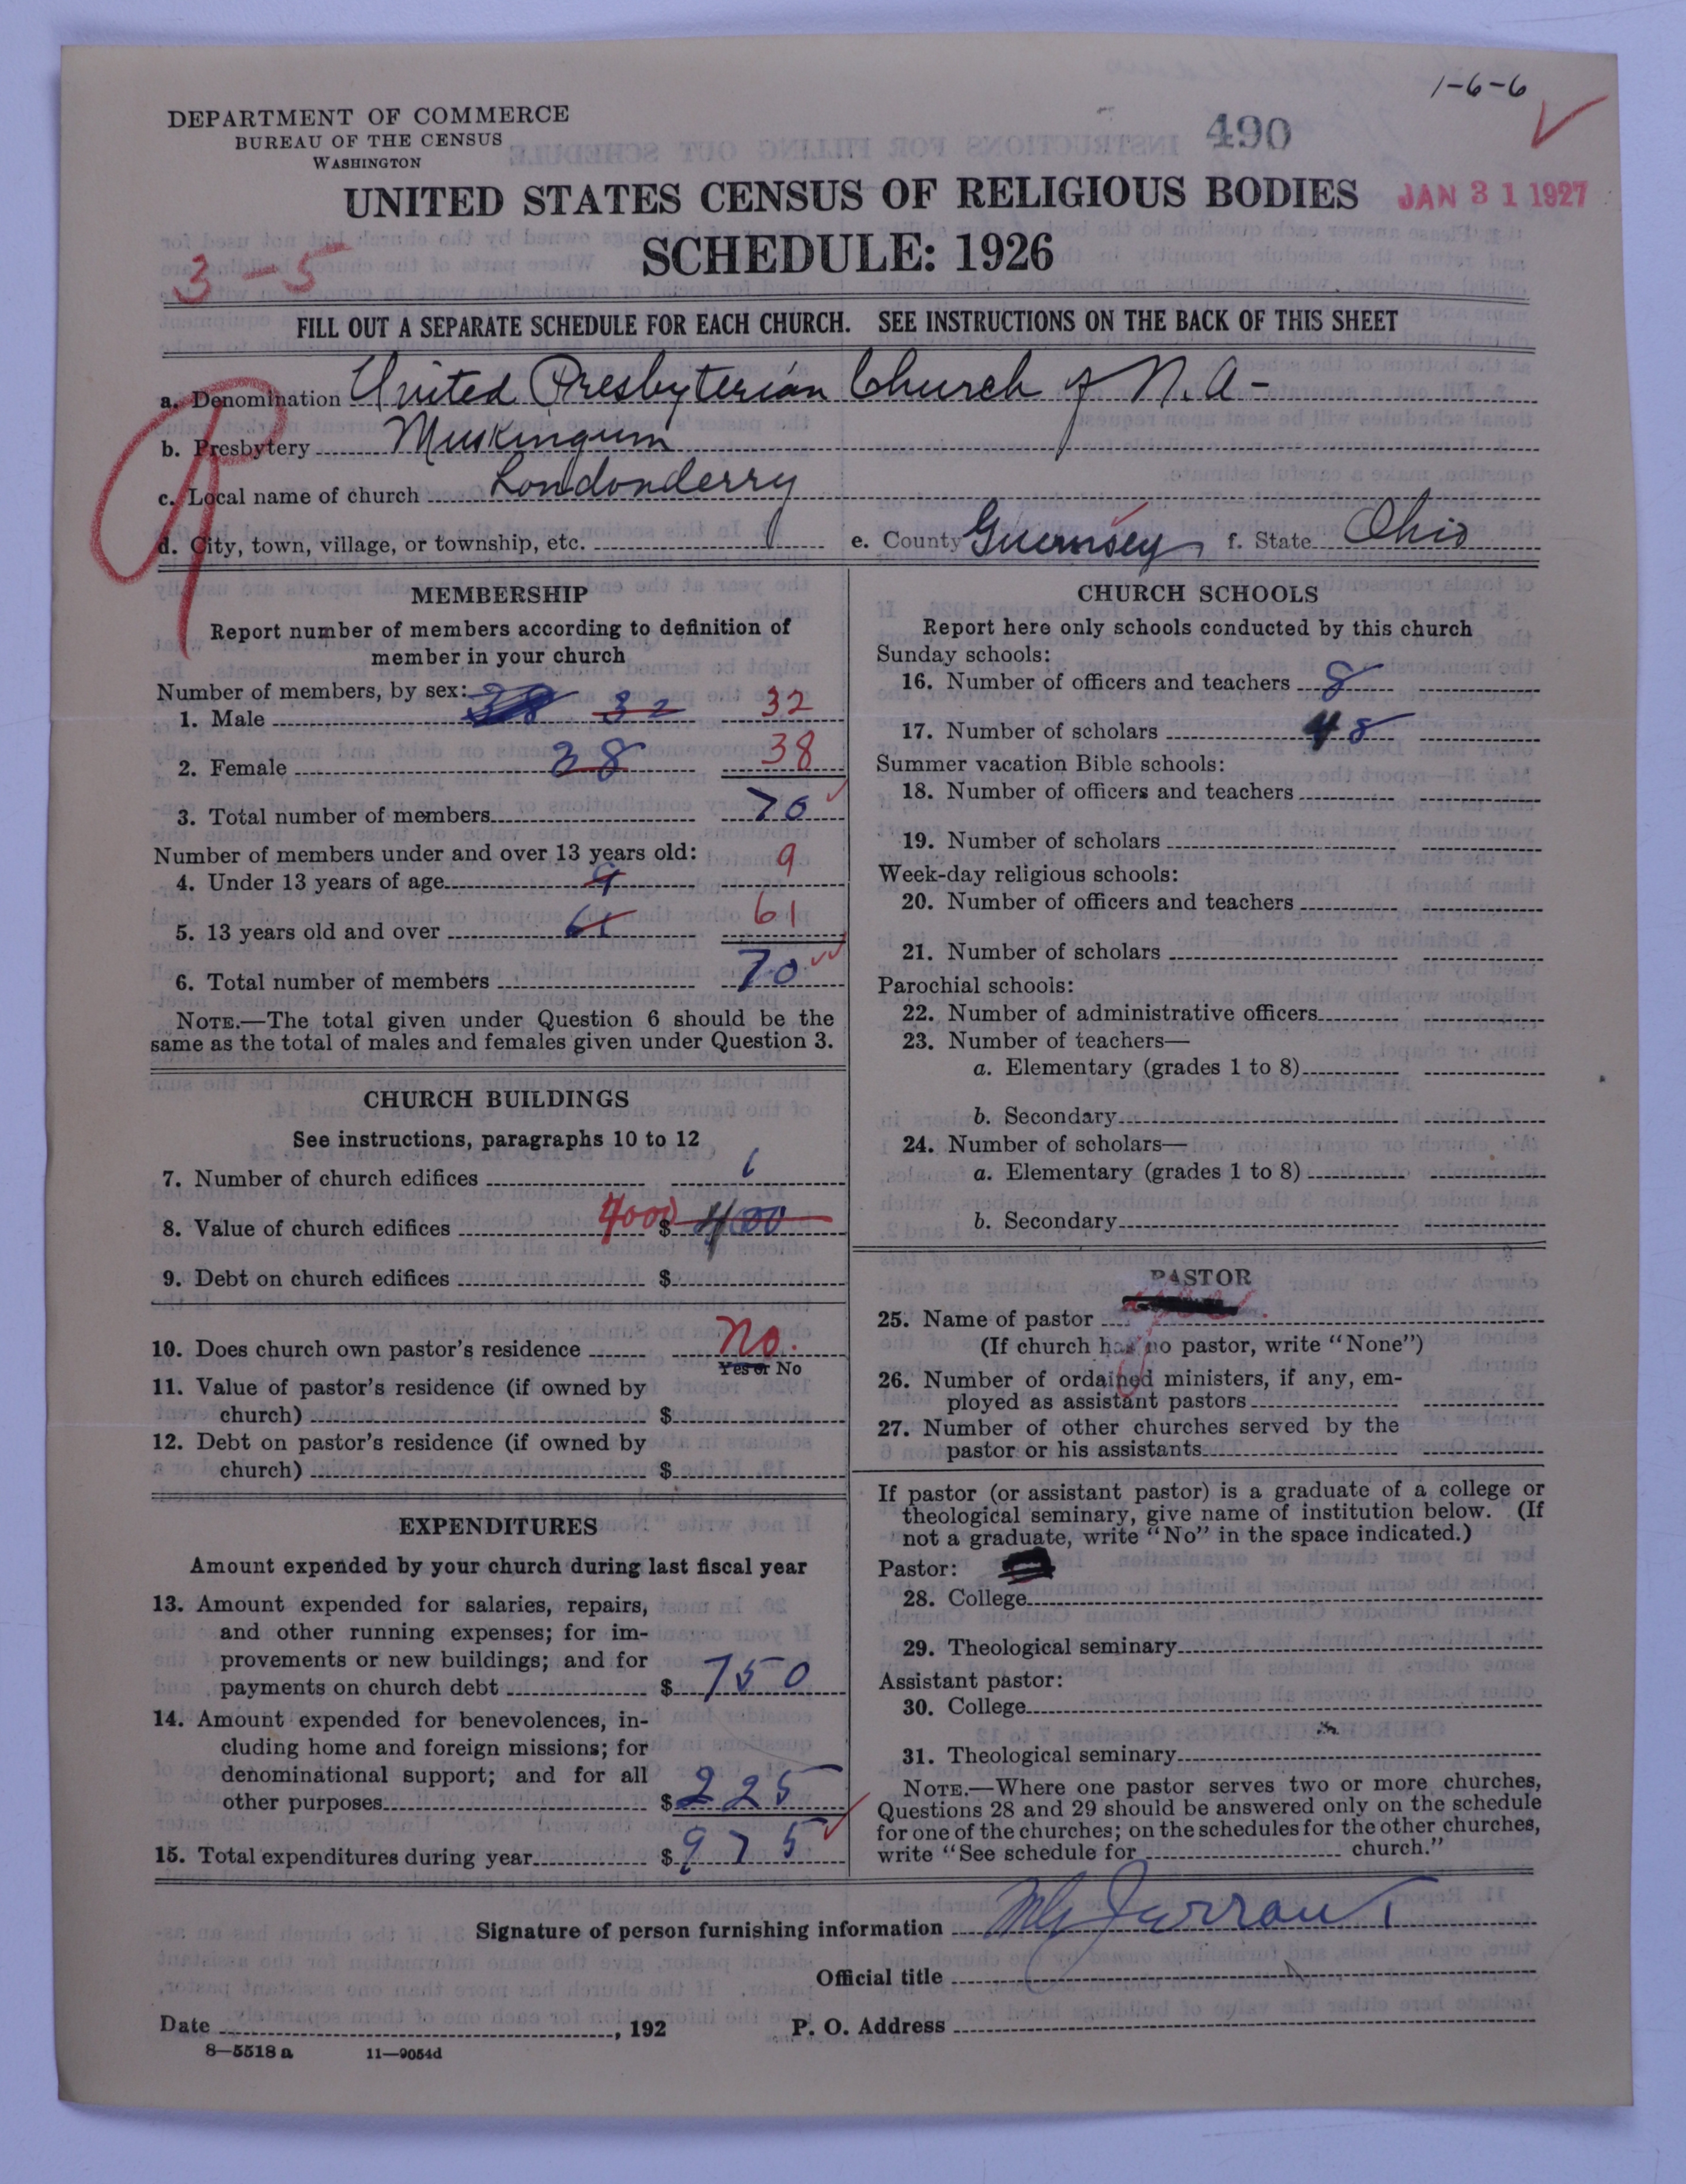 1-6-6
DEPARTMENT OF COMMERCE
BUREAU OF THE CENSUS
WASHINGTON
490
UNITED STATES CENSUS OF RELIGIOUS BODIES
JAN 31 1927
SCHEDULE: 1926
3-5
FILL OUT A SEPARATE SCHEDULE FOR EACH CHURCH. SEE INSTRUCTIONS ON THE BACK OF THIS SHEET
a. Denomination United Presbyterian Church of N.A-
b. Presbytery Muskingum
c. Local name of church Londonderry
d. City, town, village, or township, etc. e. County Guernsey f. State Ohio
MEMBERSHIP
Report number of members according to definition of
member in your church
Number of members, by sex:
1. Male 38 32 32
2. Female 38 38
3. Total number of members 70
Number of members under and over 13 years old:
4. Under 13 years of age 9 9
5. 13 years old and over 61 61
6. Total number of members 70
NOTE.—The total given under Question 6 should be the
same as the total of males and females given under Question 3.
CHURCH BUILDINGS
See instructions, paragraphs 10 to 12
7. Number of church edifices 1
8. Value of church edifices 4000 $ 400
9. Debt on church edifices $
10. Does church own pastor's residence No.
Yes or No
11. Value of pastor's residence (if owned by
church) $
12. Debt on pastor's residence (if owned by
church) $
EXPENDITURES
Amount expended by your church during last fiscal year
13. Amount expended for salaries, repairs,
and other running expenses; for im-
provements or new buildings; and for
payments on church debt $ 750
14. Amount expended for benevolences, in-
cluding home and foreign missions; for
denominational support; and for all
other purposes $ 225
15. Total expenditures during year $ 975
CHURCH SCHOOLS
Report here only schools conducted by this church
Sunday schools:
16. Number of officers and teachers 8
17. Number of scholars 48
Summer vacation Bible schools:
18. Number of officers and teachers
19. Number of scholars
Week-day religious schools:
20. Number of officers and teachers
21. Number of scholars
Parochial schools:
22. Number of administrative officers
23. Number of teachers—
a. Elementary (grades 1 to 8)
b. Secondary
24. Number of scholars—
a. Elementary (grades 1 to 8)
b. Secondary
PASTOR
25. Name of pastor
(If church has no pastor, write "None")
26. Number of ordained ministers, if any, em-
ployed as assistant pastors
27. Number of other churches served by the
pastor or his assistants
If pastor (or assistant pastor) is a graduate of a college or
theological seminary, give name of institution below. (If
not a graduate, write "No" in the space indicated.)
Pastor:
28. College
29. Theological seminary
Assistant pastor:
30. College
31. Theological seminary
NOTE.—Where one pastor serves two or more churches,
Questions 28 and 29 should be answered only on the schedule
for one of the churches; on the schedules for the other churches,
write "See schedule for church."
Signature of person furnishing information
Official title
Date , 192 P. O. Address
8—5518 a 11—9054d